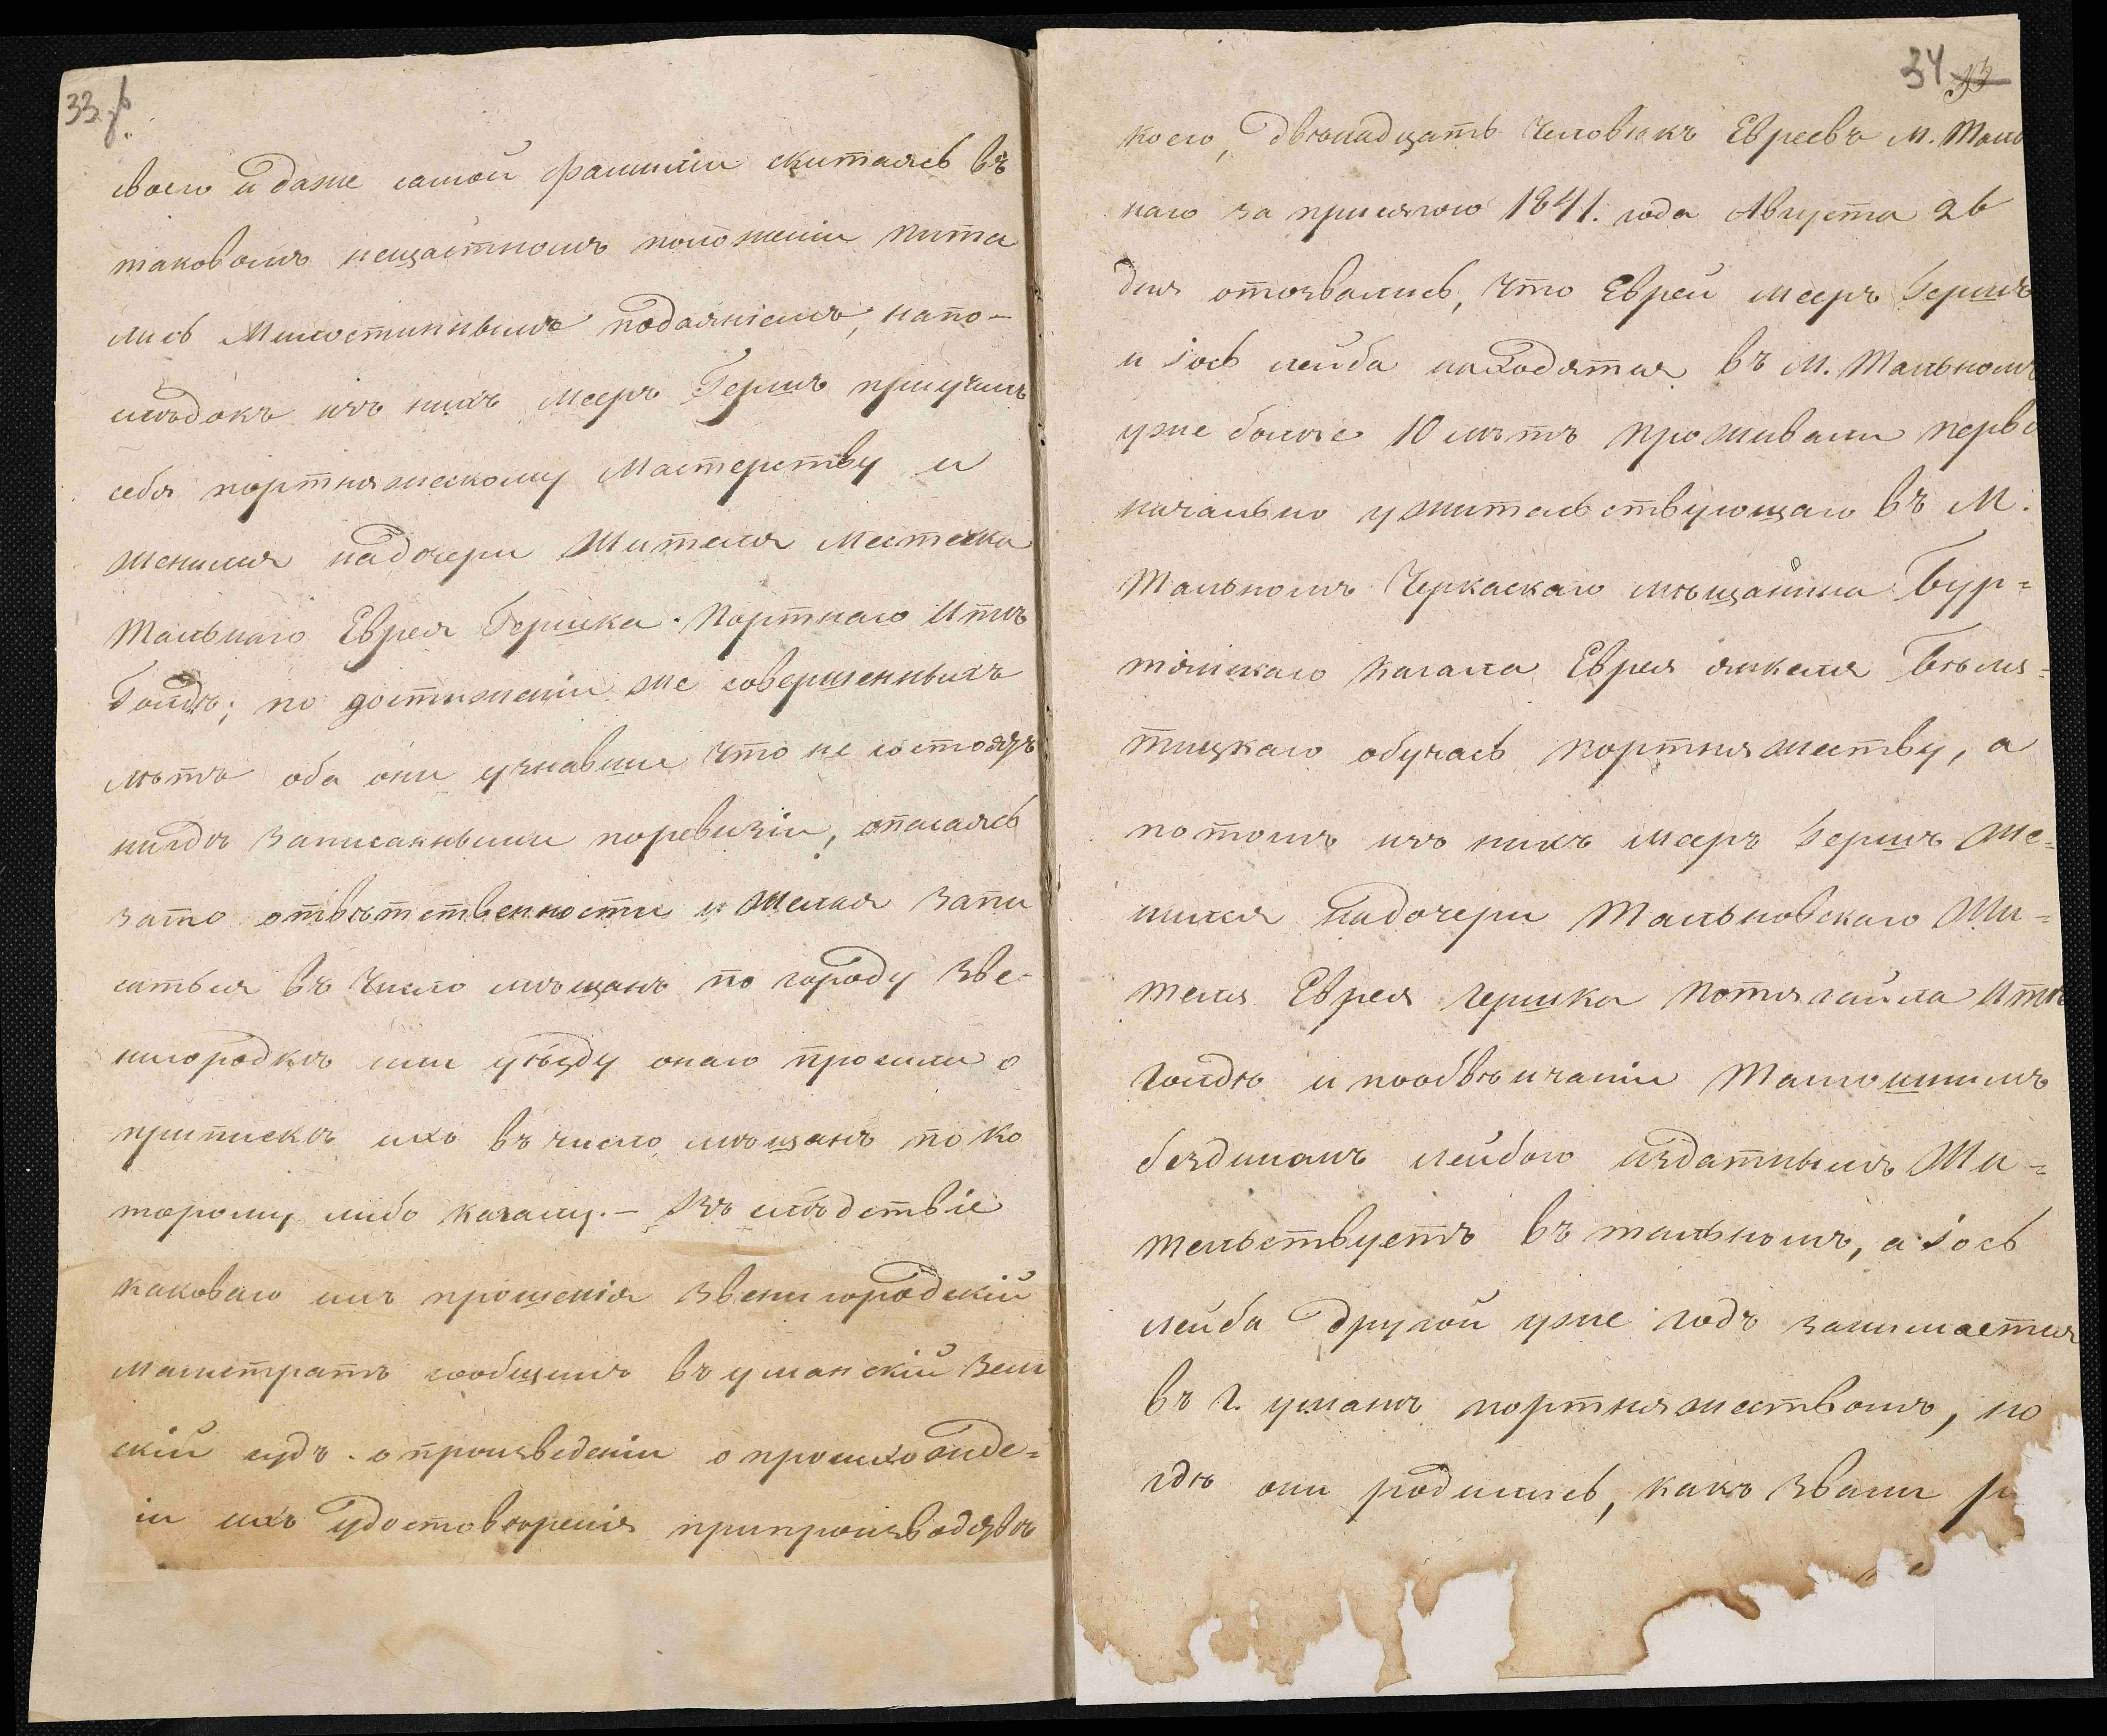 33 об.
своего и даже самой фамиліи скитаясь въ
таковомъ нещастномъ положеніи пита
лись Милостиннымъ подаяніемъ, напо-
слѣдокъ изъ нихъ Мееръ Гершъ приучилъ
себя портняжескому Мастерству и
женился надочери Жителя Местечка
Тальнаго Еврея Гершка Портнаго Итѣ
Голдѣ; по достиженіи же совершенныхъ
лѣтъ оба они узнавши что не состоятъ
нигдѣ записанными поревизіи, опасаясь
зато отвѣтственности и Желая запи
саться въ Число мѣщанъ по городу Зве-
нигородкѣ или уѣзду онаго просили о
припискѣ ихъ въ число мѣщанъ по ко
торому либо кагалу. – Въ слѣдствіе
каковаго ихъ прошенія Звенигородскій
магистратъ сообщилъ въ уманскій Зем
скій судъ о произведеніи о происхожде=
іи ихъ удостовѣренія припроизводствѣ
34 33
коего, двѣнадцать Человѣкъ Евреевъ М. Таль
наго за присягою 1841. года Августа 26
дня отозвались, Что Еврей Мееръ Гершъ
и Іось лейба находятся въ М. Тальномъ
уже более 10 лѣтъ проживали перво
начально ужительствующаго въ М.
Тальномъ Черкаскаго мѣщанина Бур=
тянскаго кагала Еврея янкеля Бѣля=
тицкаго обучась портняжеству, а
потомъ изъ нихъ Мееръ Гершъ Же=
нился надочери Тальновскаго Жи=
теля Еврея гершка Потягайла Итѣ
Голдѣ и пообвѣнчаніи Жи=
тельствуетъ въ тальномъ, а Іось
лейба другой уже годъ занимается
въ г. уманѣ портняжествомъ, но
гдѣ они родились, какъ звали р